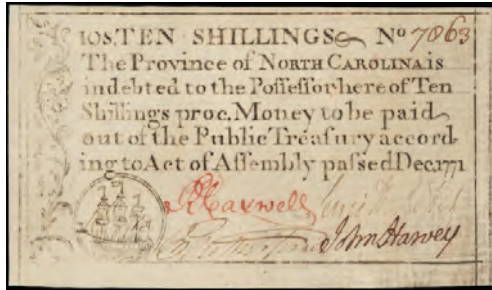 10S. TEN SHILLINGS No 7063
The Province of NORTH CAROLINA is
indebted to the Poſſeſſor hereof Ten
Shillings proc. Money to be paid
out of the Public Treaſury accord
ing to Act of Aſſembly paſſed Dec. 1771
John Harvey